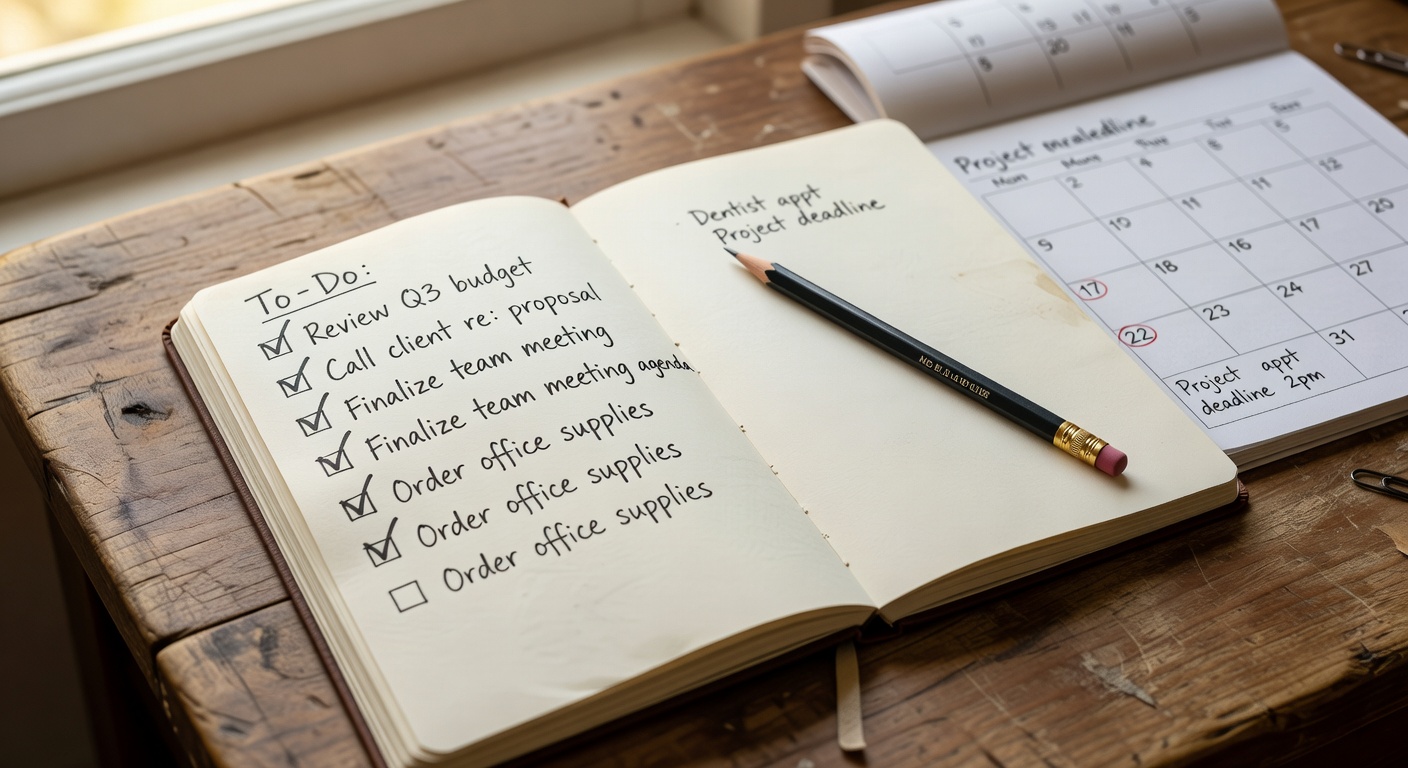 To-Do:
Review Q3 budget
Call client re: proposal
Finalize team meeting
Finalize team meeting agenda
Order office supplies
Order office supplies
Order office supplies
Dentist appt
Project deadline
Project
Mon
2 4 8 5
9 10 11 11 12
17 18 16 17 20
22 23 24 27
31
Project appt
deadline 2pm